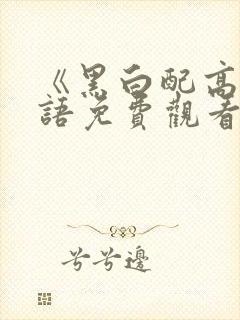 《黑白配高
語免費觀看
兮兮邊